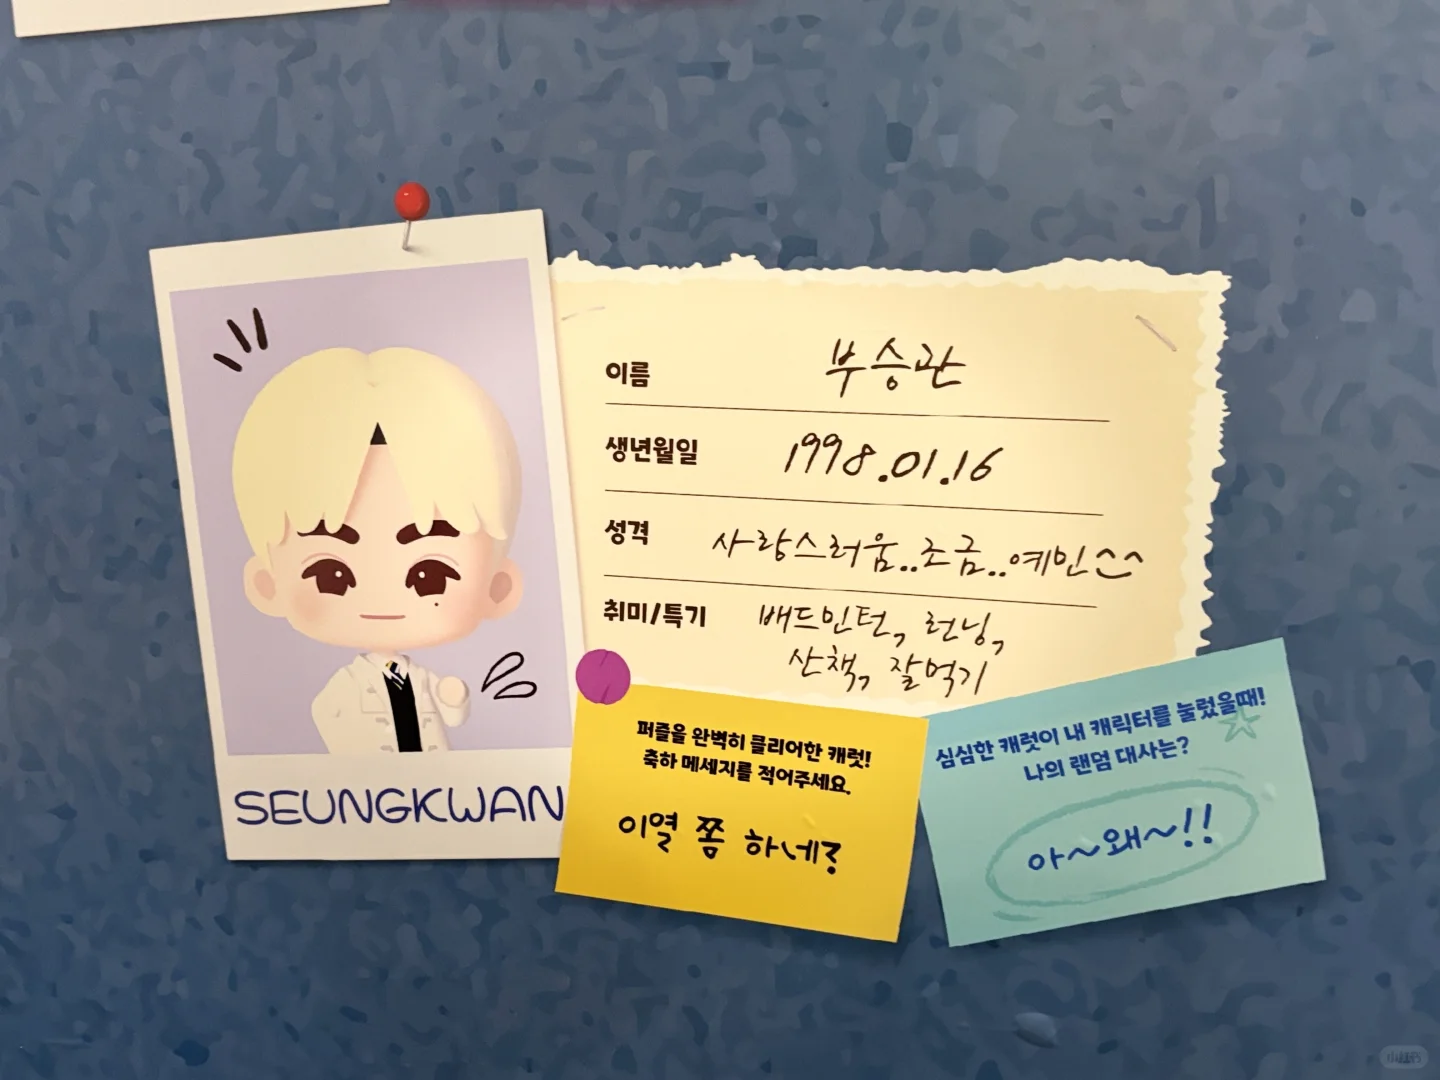 이름 부승관
생년월일 1998.01.16
성격 사랑스러움..조금..예민^^
취미/특기 배드민턴, 런닝,
산책, 잘먹기
SEUNGKWAN
퍼즐을 완벽히 클리어한 캐럿!
축하 메세지를 적어주세요.
이열 쫌 하네?
심심한 캐럿이 내 캐릭터를 눌렀을때!
나의 랜덤 대사는?
아~왜~!!